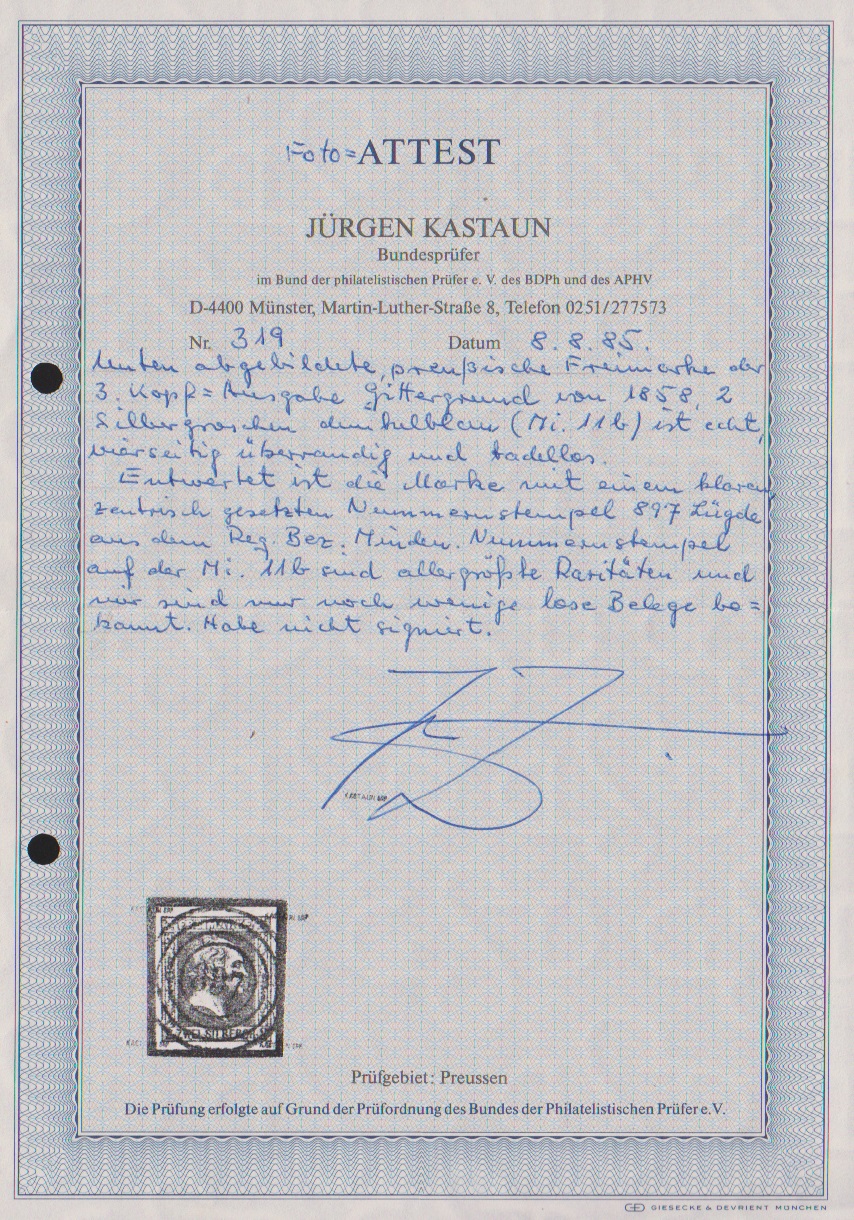 Foto=ATTEST
JÜRGEN KASTAUN
Bundesprüfer
im Bund der philatelistischen Prüfer e. V. des BDPh und des APHV
D-4400 Münster, Martin-Luther-Straße 8, Telefon 0251/277573
Nr. 319 Datum 8. 8. 85.
Unten abgebildete, preußische Freimarke der
3. Kopf=Ausgabe Gittergrund von 1858, 2
Silbergroschen dunkelblau (Mi. 11b) ist echt,
vierseitig überrandig und tadellos.
Entwertet ist die Marke mit einem klaren,
zentrisch gesetzten Nummernstempel 897 Lügde
aus dem Reg. Bez. Minden. Nummernstempel
auf der Mi. 11b sind allergrößte Raritäten und
mir sind nur noch wenige lose Belege be=
kannt. Habe nicht signiert.
KASTAUN BPP
Prüfgebiet: Preussen
Die Prüfung erfolgte auf Grund der Prüfordnung des Bundes der Philatelistischen Prüfer e.V.
GIESECKE & DEVRIENT MÜNCHEN